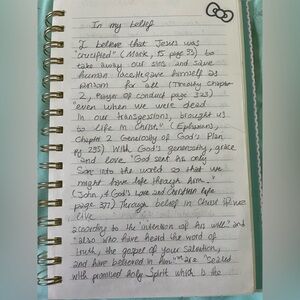 In my belief
I believe that Jesus was
"crucified" (Mark, 15 page 53) to
take away our sins and save
human race. He gave himself as
ransom for all (Timothy chapter
2, Prayer of conduct page 323)
"even when we were dead
In our transgression, brought us
to life in Christ," (Ephesians,
Chapter 2 Generosity of God's Plan
pg 295) With God's generosity, grace
and love "God sent his only
Son into the world so that we
might have life through him."
(John, 4 God's Love and Christian life
page 377) Through belief in Christ
live
according to the intention of his will? and
"also who have heard the word of
truth, the gospel of your salvation,
and have believed in him" are "Sealed
with promised Holy Spirit which is the